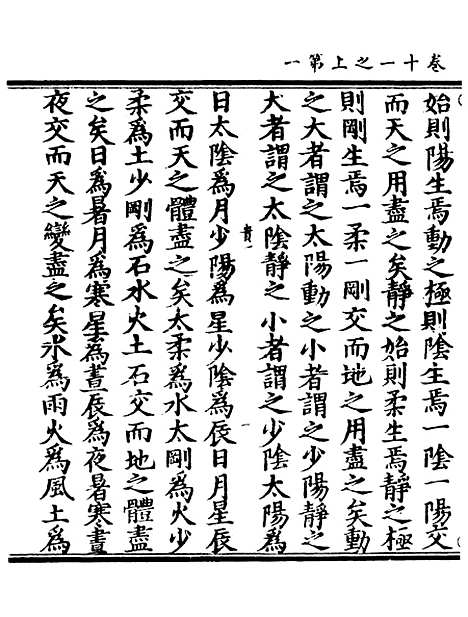 卷十一之上第一
始則陽生焉動之極則陰生焉一陰一陽交
而天之用盡之矣靜之始則柔生焉靜之極
則剛生焉一柔一剛交而地之用盡之矣動
之大者謂之太陽動之小者謂之少陽靜之
大者謂之太陰靜之小者謂之少陰太陽爲
日太陰爲月少陽爲星少陰爲辰日月星辰
交而天之體盡之矣太柔爲水太剛爲火少
柔爲土少剛爲石水火土石交而地之體盡
之矣日爲暑月爲寒星爲晝辰爲夜暑寒晝
夜交而天之變盡之矣水爲雨火爲風土爲